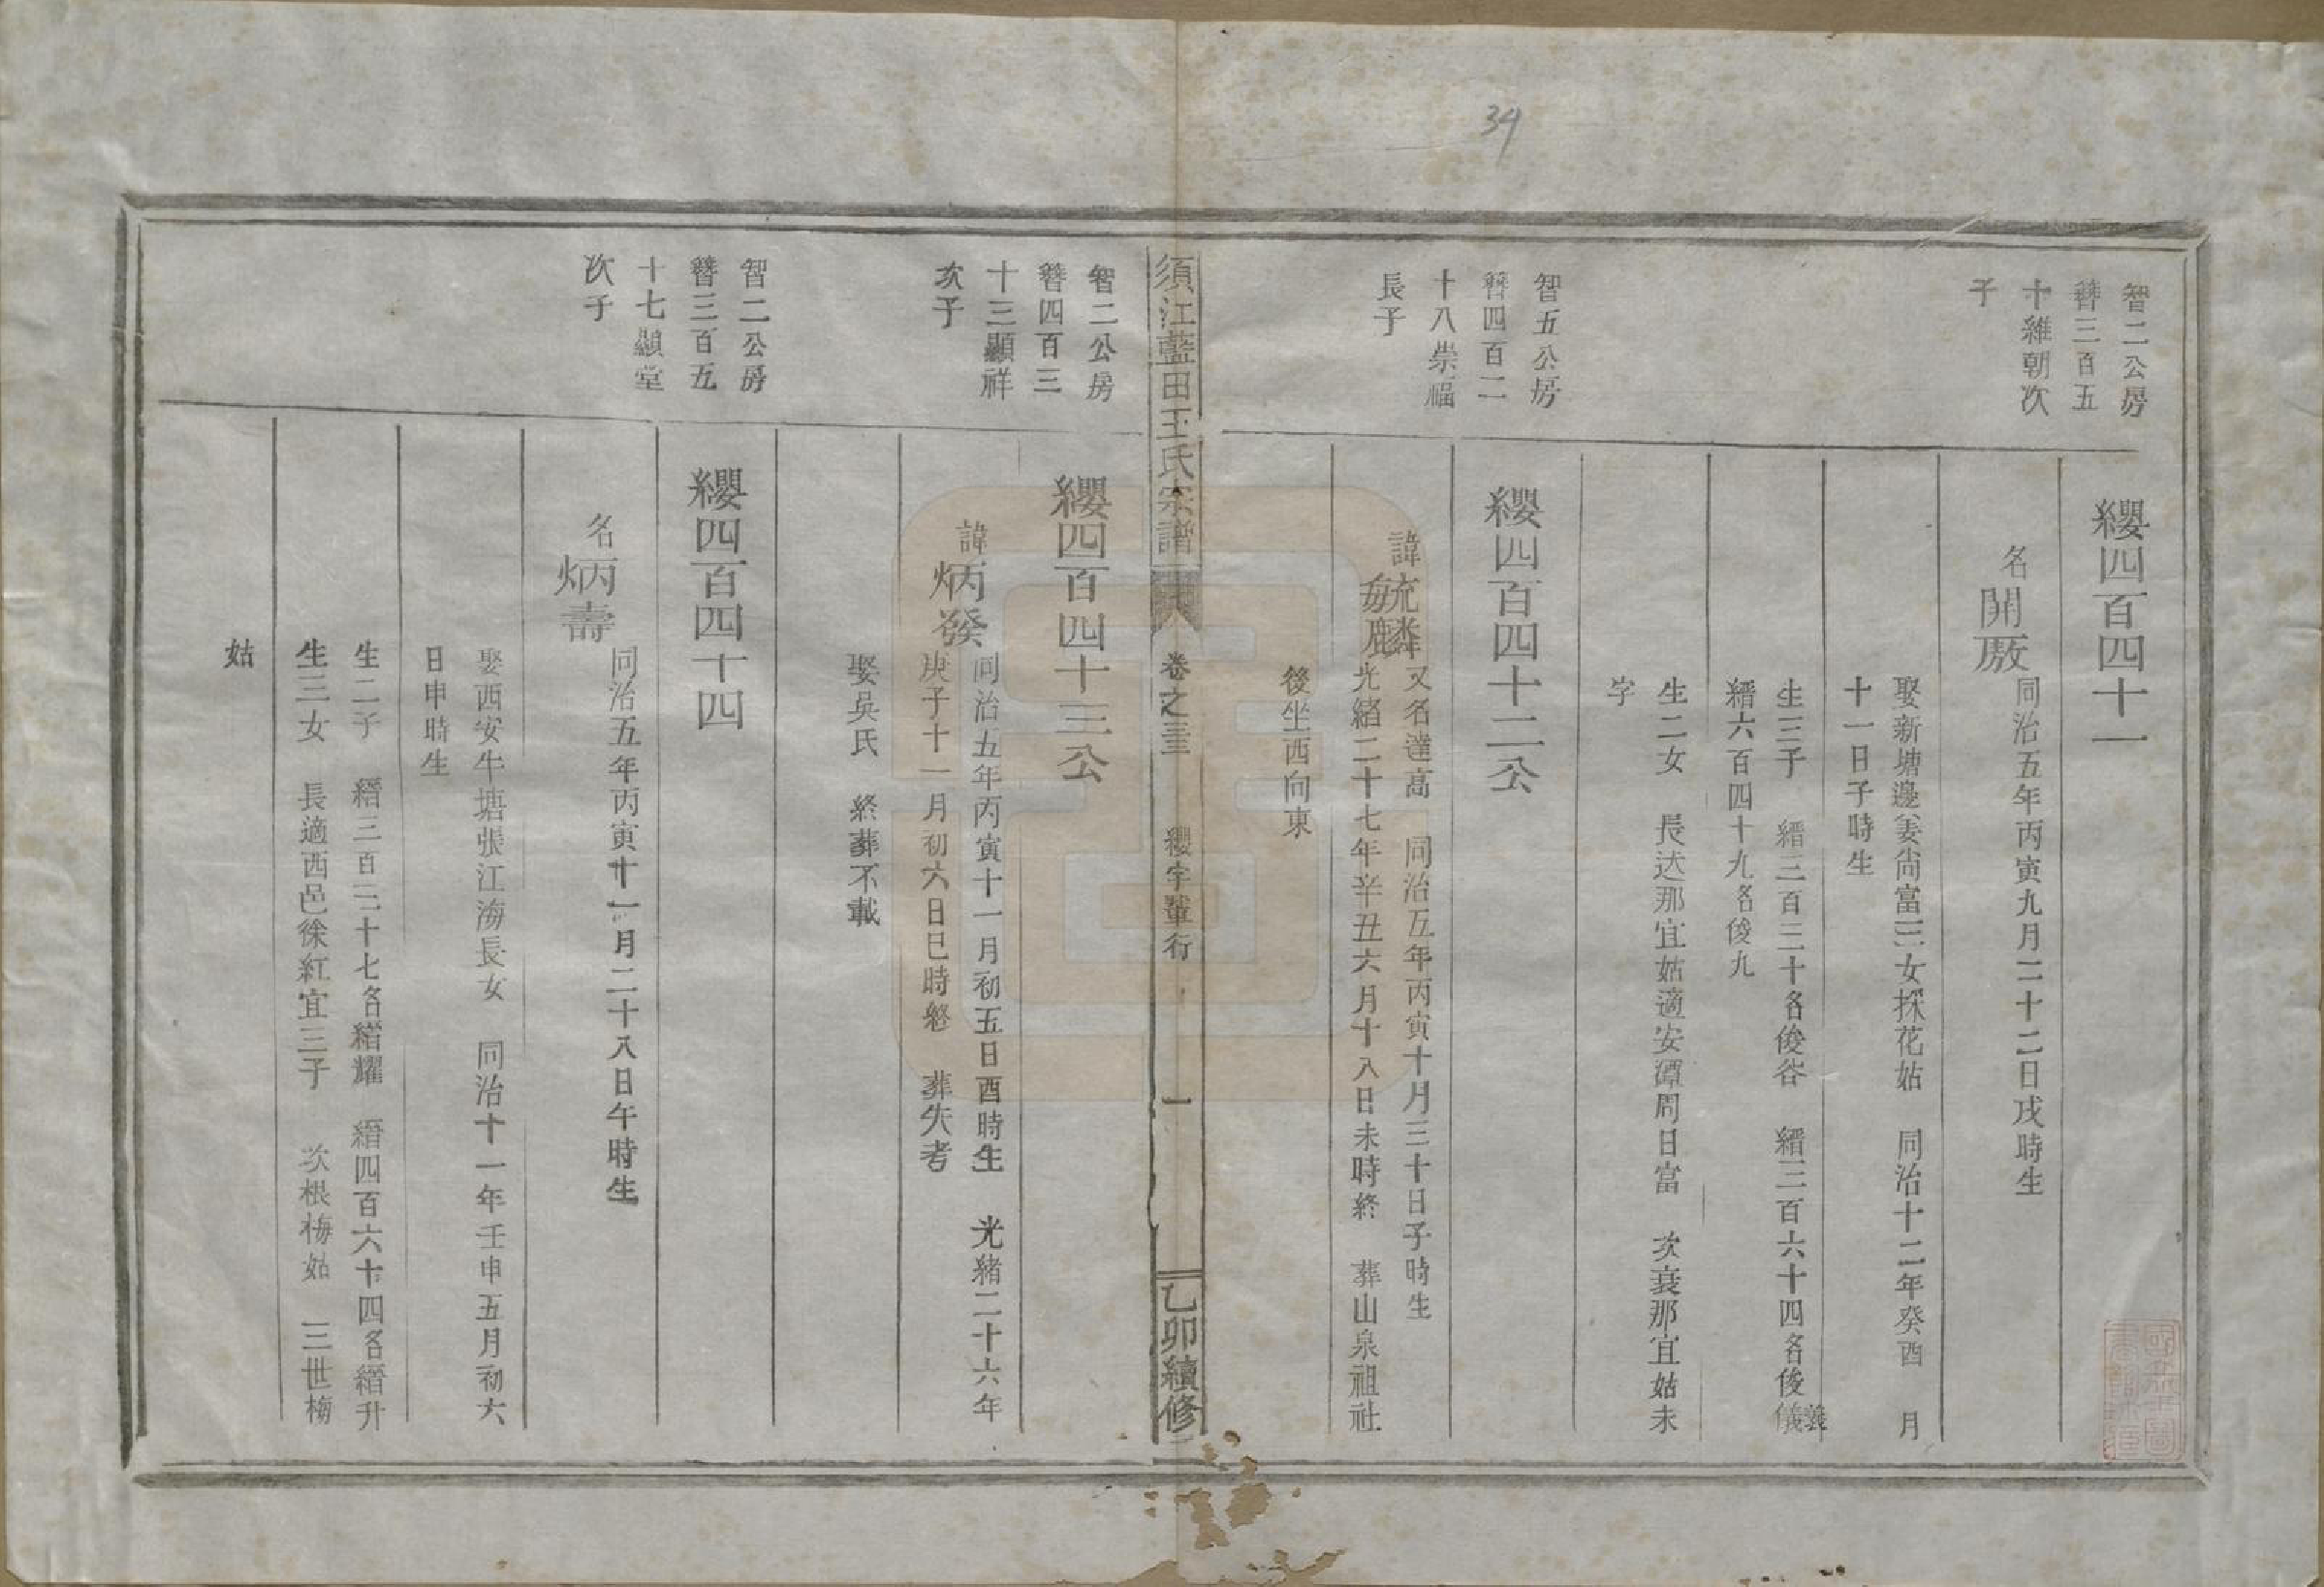 34
智二公房
簪三百五
十維朝次
子
纓四百四十一
名開厫
同治五年丙寅九月二十二日戌時生
娶新塘邊姜尙富三女採花姑 同治十二年癸酉 月
十一日子時生
生三子 縉三百三十名俊峇 縉三百六十四名俊儀義
縉六百四十九名俊九
生二女 長达那宜姑適安潭周日富 次衰那宜姑未
字
智五公房
簪四百二
十八崇福
長子
纓四百四十二公
諱毓麟
又名達高 同治五年丙寅十月三十日子時生
光緒二十七年辛丑六月十八日未時終 葬山泉祖社
後坐西向東
須江藍田王氏宗譜
卷之三 纓字輩行 一
乙卯續修
智二公房
簪四百三
十三顯祥
次子
纓四百四十三公
諱炳發
同治五年丙寅十一月初五日酉時生 光緒二十六年
庚子十一月初六日巳時終 葬失考
娶吳氏 終葬不載
智二公房
簪三百五
十七顯堂
次子
纓四百四十四
名炳壽
同治五年丙寅十一月二十八日午時生
娶西安牛塘張江海長女 同治十一年壬申五月初六
日申時生
生二子 縉三百三十七名縉耀 縉四百六十四名縉升
生三女 長適西邑徐紅宜三子 次根梅姑 三世梅
姑